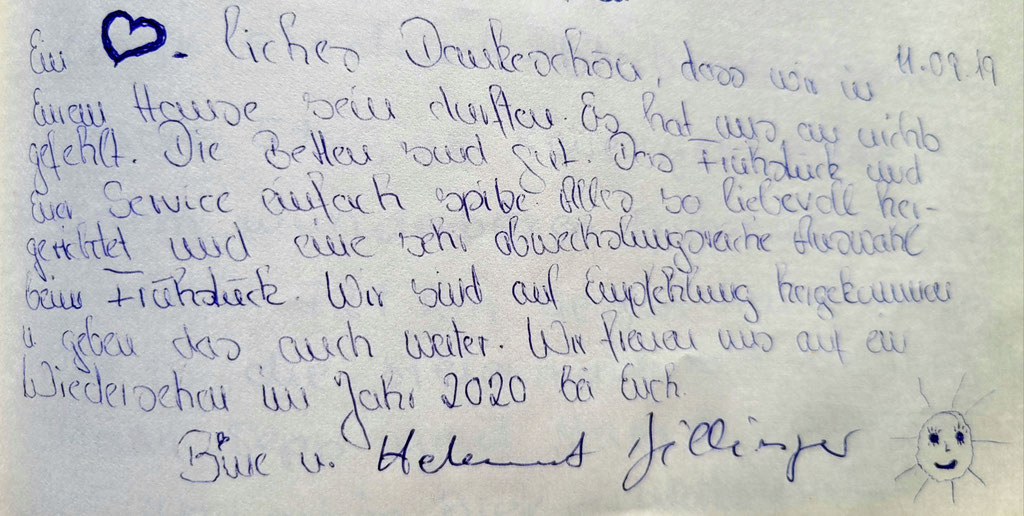 Ein ♥-liches Dankeschön, dass wir in 11.09.19
Eurem Hause sein durften. Es hat uns an nichts
gefehlt. Die Betten sind gut. Das Frühstück und
Euer Service einfach spitze. Alles so liebevoll her-
gerichtet und eine sehr abwechslungsreiche Auswahl
beim Frühstück. Wir sind auf Empfehlung hergekommen
u geben das auch weiter. Wir freuen uns auf ein
Wiedersehen im Jahr 2020 bei Euch.
u. Helmut